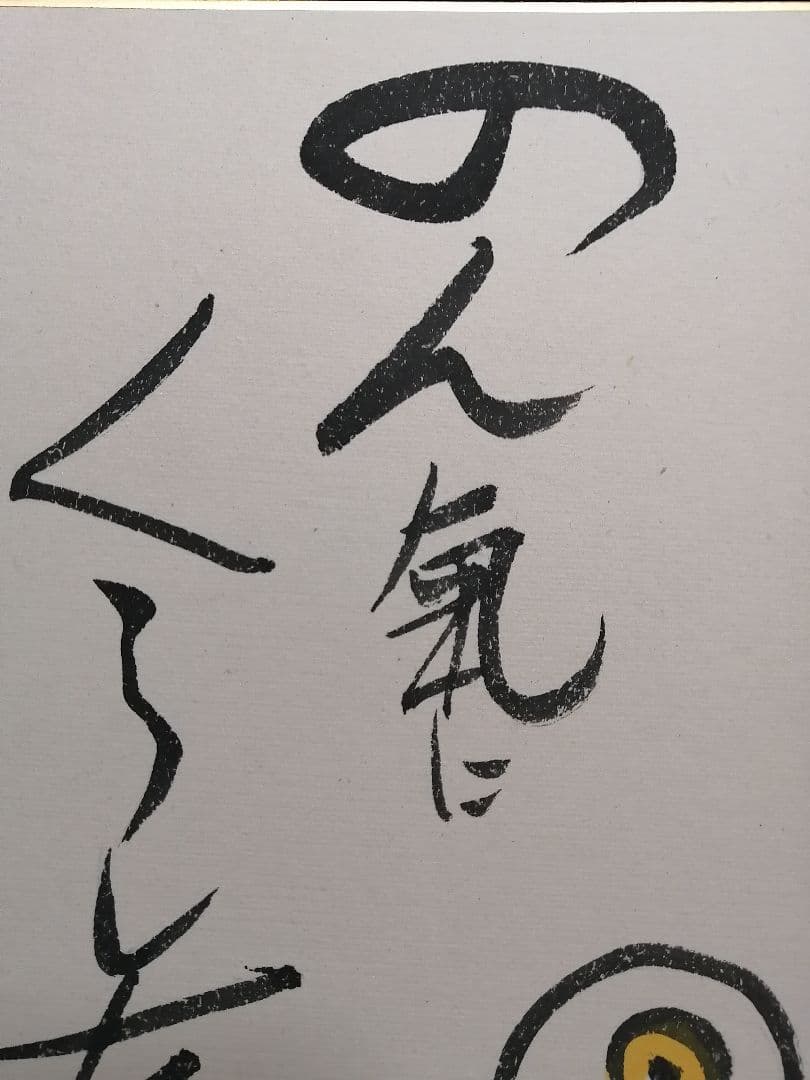 のん氣に
くらし